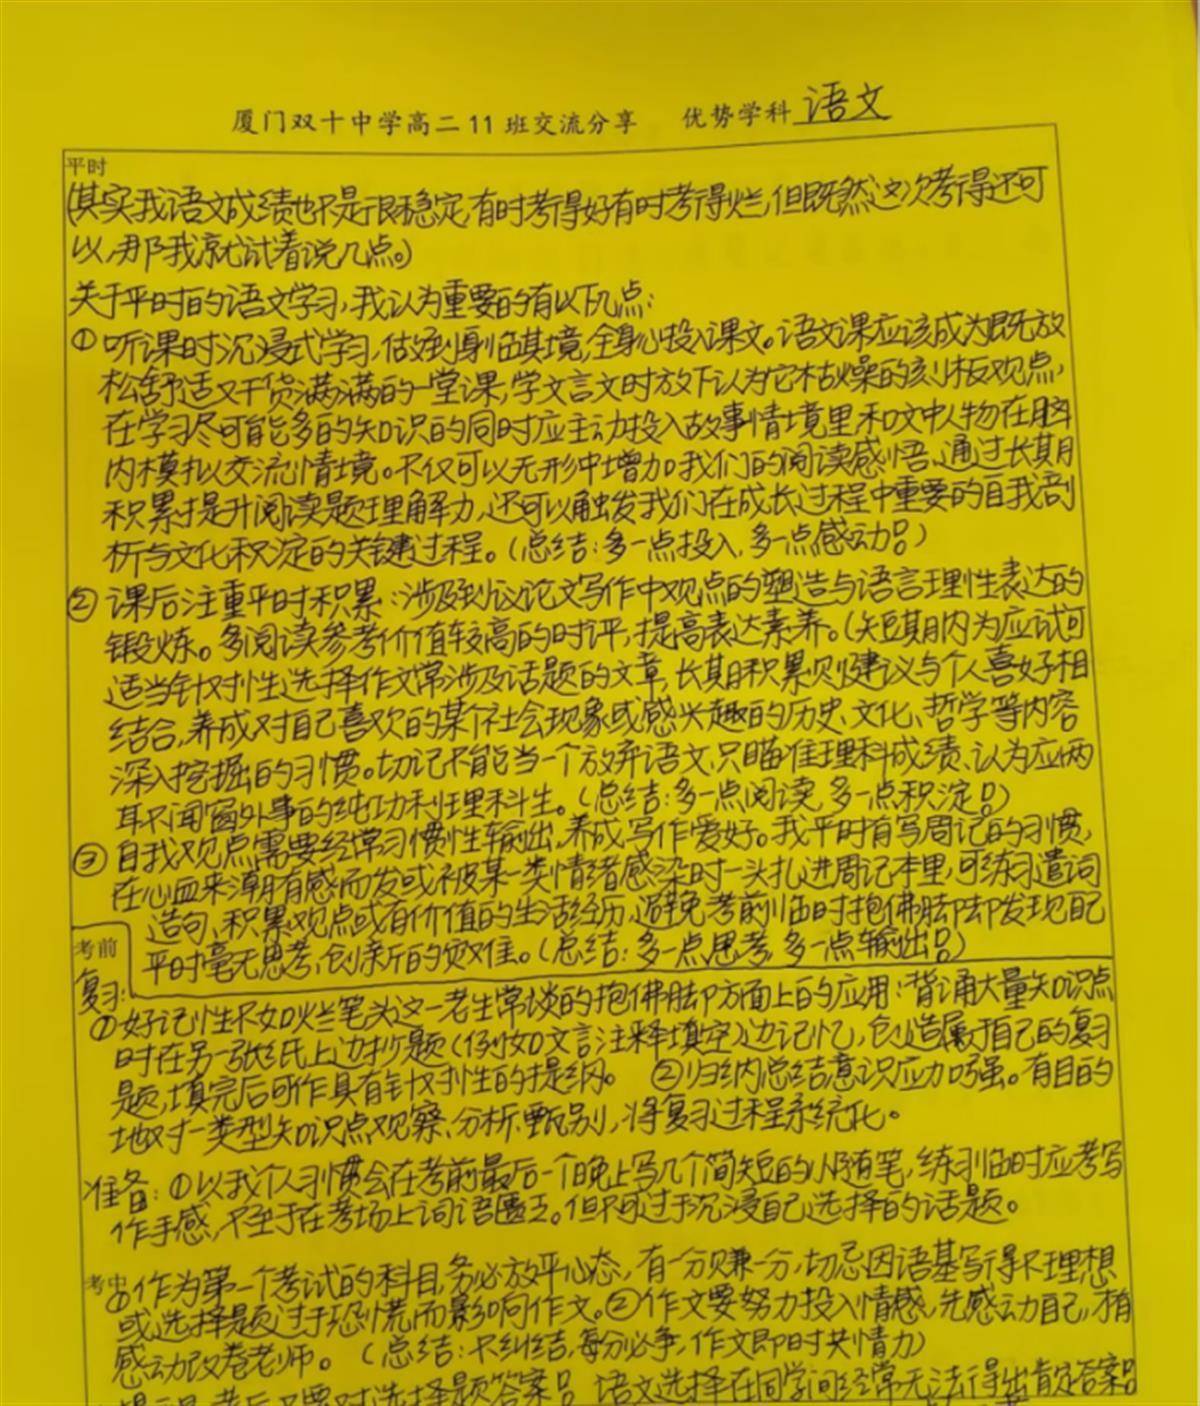 厦门双十中学高二11班交流分享 优势学科 语文
平时
(其实我语文成绩也不是很稳定,有时考得好有时考得烂,但既然这次考得还可
以,那我就试着说几点。)
关于平时的语文学习,我认为重要的有以下几点:
① 听课时沉浸式学习,做到身临其境,全身心投入课文。语文课应该成为既放
松舒适又干货满满的一堂课,学文言文时放下认为它枯燥的刻板观点,
在学习尽可能多的知识的同时应主动投入故事情境里和文中人物在脑
内模拟交流情境。不仅可以无形中增加我们的阅读感悟、通过长期
积累提升阅读题理解力,还可以触发我们在成长过程中重要的自我剖
析与文化积淀的关键过程。(总结:多一点投入,多一点感动!)
② 课后注重平时积累:涉及到议论文写作中观点的塑造与语言理性表达的
锻炼。多阅读参考价值较高的时评,提高表达素养。(短期内为应试可
适当针对性选择作文常涉及话题的文章,长期积累则建议与个人喜好相
结合,养成对自己喜欢的某个社会现象或感兴趣的历史、文化、哲学等内容
深入挖掘的习惯。切记不能当一个放弃语文,只瞄准理科成绩、认为应两
耳不闻窗外事的纯功利理科生。(总结:多一点阅读,多一点积淀!)
③ 自我观点需要经常习惯性输出,养成写作爱好。我平时有写周记的习惯,
在心血来潮有感而发或被某一类情绪感染时一头扎进周记本里,可练习遣词
造句、积累观点或有价值的生活经历,避免考前临时抱佛脚却发现自己
平时毫无思考、创新的灾难。(总结:多一点思考,多一点输出!)
考前
复习:
①好记性不如烂笔头这一老生常谈的抱佛脚方面上的应用:背诵大量知识点
时在另一张纸上边抄题(例如文言注释填空)边记忆,创造属于自己的复习
题,填完后可作具有针对性的提纲。 ②归纳总结意识应加强。有目的
地对一类型知识点观察、分析、甄别,将复习过程系统化。
准备:①以我个人习惯会在考前最后一个晚上写几个简短的小随笔,练习临时应考写
作手感,不至于在考场上词语匮乏。但不可过于沉浸自己选择的话题。
考中
①作为第一个考试的科目,务必放平心态,有一分赚一分,切忌因语基写得不理想
或选择题过于恐慌而影响作文。②作文要努力投入情感,先感动自己,才有
感动改卷老师。(总结:不纠结,每分必争,作文即时共情力)
考后不要对选择题答案! 语文选择在同学间经常无法得出肯定答案!